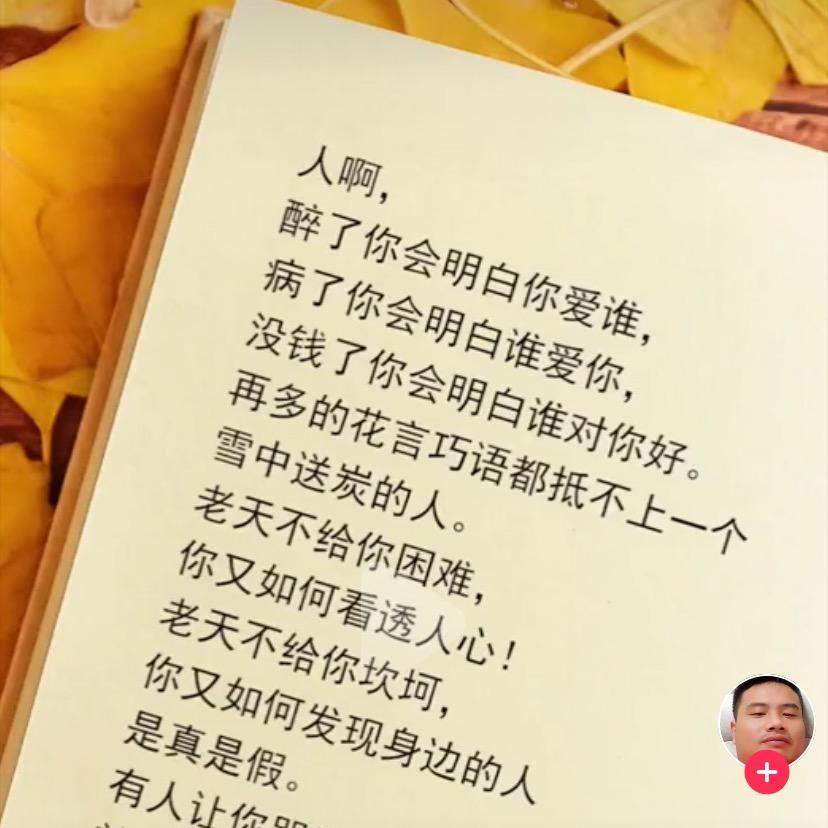 人啊，
醉了你会明白你爱谁，
病了你会明白谁爱你，
没钱了你会明白谁对你好。
再多的花言巧语都抵不上一个
雪中送炭的人。
老天不给你困难，
你又如何看透人心！
老天不给你坎坷，
你又如何发现身边的人
是真是假。
有人让你